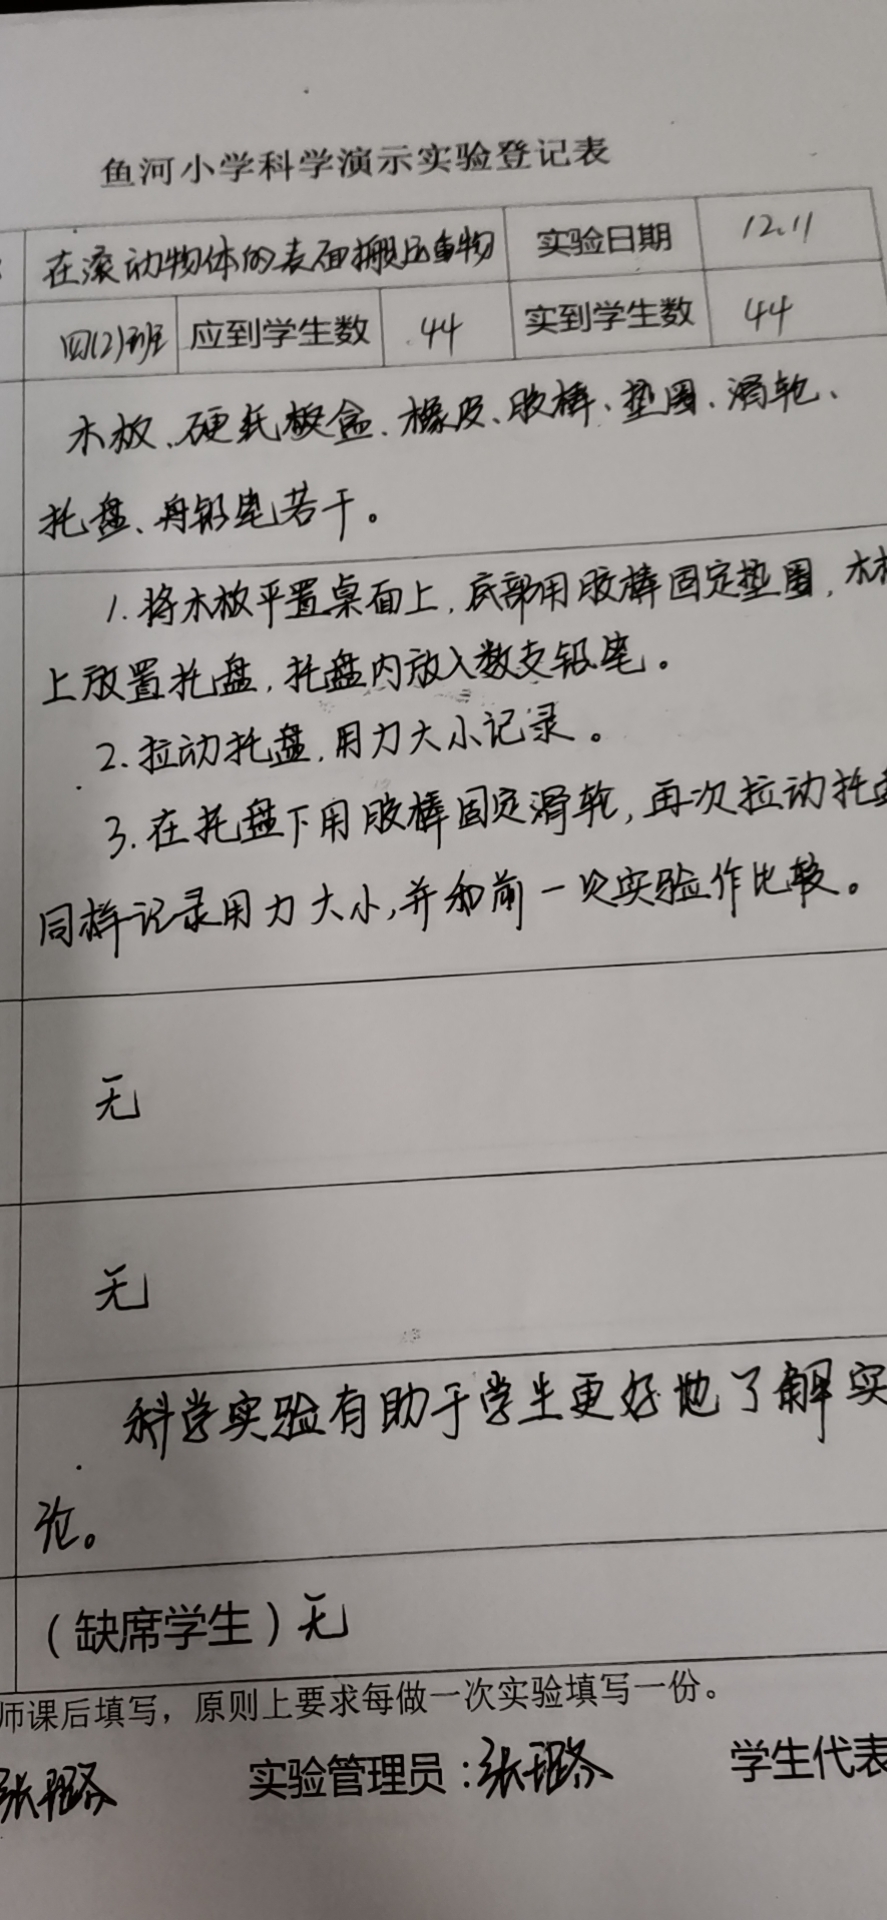 鱼河小学科学演示实验登记表
在滚动物体的表面搬运重物 实验日期 12.11
四(2)班 应到学生数 44 实到学生数 44
木板、硬纸板盒、橡皮、胶棒、垫圈、滑轮、
托盘、铅笔若干。
1.将木板平置桌面上,底部用胶棒固定垫圈,木板
上放置托盘,托盘内放入数支铅笔。
2.拉动托盘,用力大小记录。
3.在托盘下用胶棒固定滑轮,再次拉动托盘
同样记录用力大小,并和前一次实验作比较。
无
无
科学实验有助于学生更好地了解实
论。
(缺席学生)无
师课后填写,原则上要求每做一次实验填写一份。
张 实验管理员:张 学生代表